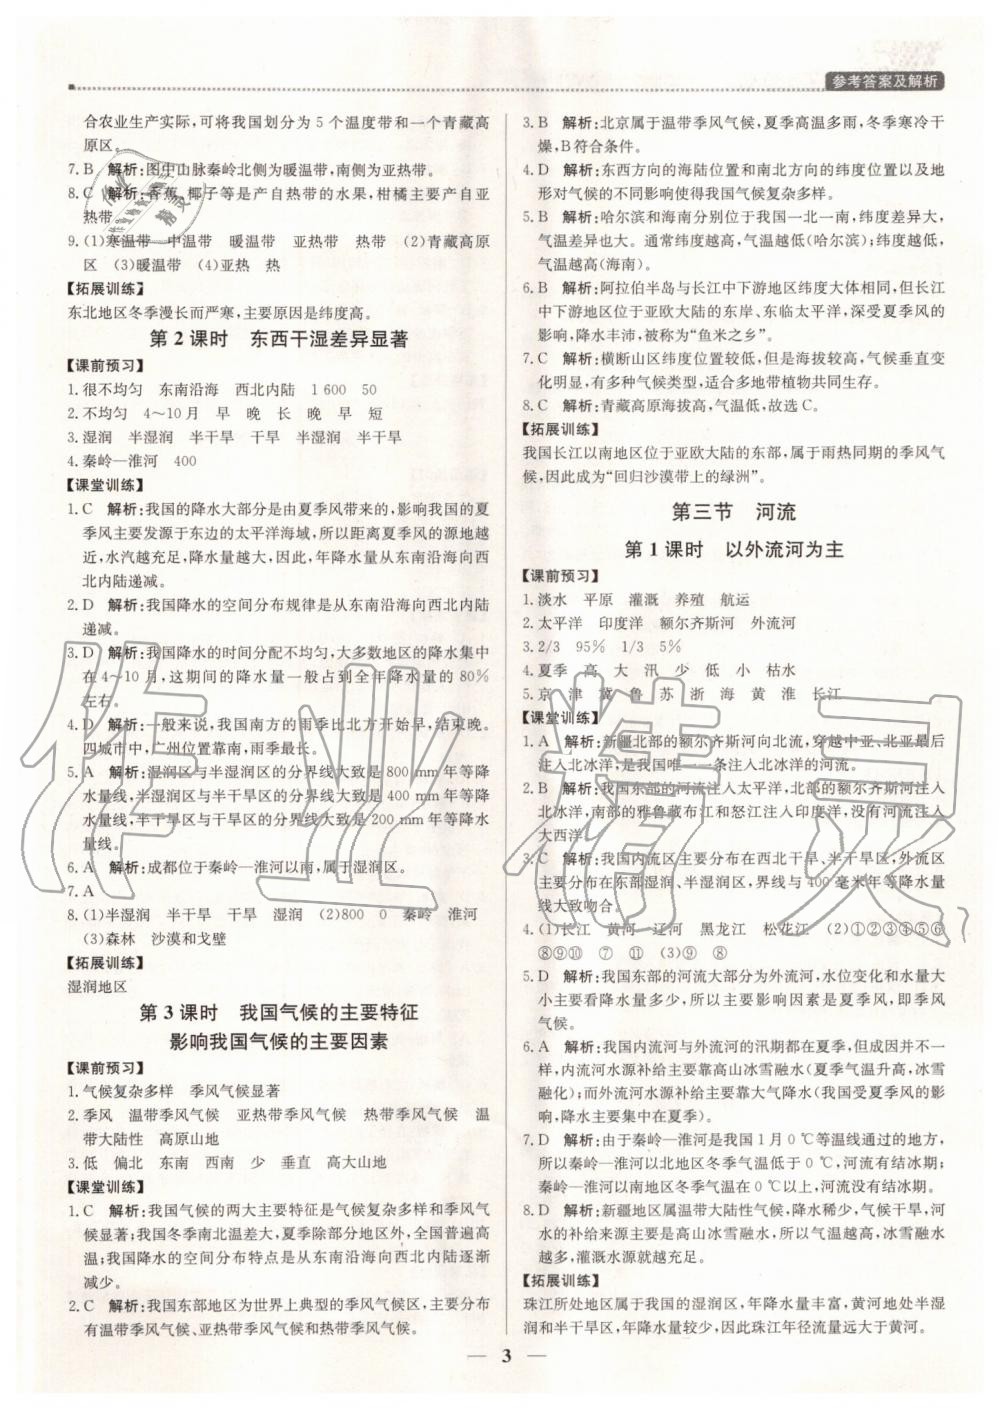 参考答案及解析
合农业生产实际,可将我国划分为 5 个温度带和一个青藏高
原区。
7. B 解析:图中山脉秦岭北侧为暖温带,南侧为亚热带。
8. C 解析:香蕉、椰子等是产自热带的水果,柑橘主要产自亚
热带。
9. (1)寒温带 中温带 暖温带 亚热带 热带 (2)青藏高原
区 (3)暖温带 (4)亚热 热
【拓展训练】
东北地区冬季漫长而严寒,主要原因是纬度高。
第 2 课时 东西干湿差异显著
【课前预习】
1. 很不均匀 东南沿海 西北内陆 1 600 50
2. 不均匀 4～10 月 早 晚 长 晚 早 短
3. 湿润 半湿润 半干旱 干旱 半湿润 半干旱
4. 秦岭—淮河 400
【课堂训练】
1. C 解析:我国的降水大部分是由夏季风带来的,影响我国的夏
季风主要发源于东边的太平洋海域,所以距离夏季风的源地越
近,水汽越充足,降水量越大,因此,年降水量从东南沿海向西
北内陆递减。
2. D 解析:我国降水的空间分布规律是从东南沿海向西北内陆
递减。
3. D 解析:我国降水的时间分配不均匀,大多数地区的降水集中
在 4～10 月,这期间的降水量一般占到全年降水量的 80%
左右。
4. D 解析:一般来说,我国南方的雨季比北方开始早,结束晚。
四城市中,广州位置靠南,雨季最长。
5. A 解析:湿润区与半湿润区的分界线大致是 800 mm 年等降
水量线,半湿润区与半干旱区的分界线大致是 400 mm 年等降
水量线,半干旱区与干旱区的分界线大致是 200 mm 年等降水
量线。
6. A 解析:成都位于秦岭—淮河以南,属于湿润区。
7. A
8. (1)半湿润 半干旱 干旱 湿润 (2)800 0 秦岭 淮河
(3)森林 沙漠和戈壁
【拓展训练】
湿润地区
第 3 课时 我国气候的主要特征
影响我国气候的主要因素
【课前预习】
1. 气候复杂多样 季风气候显著
2. 季风 温带季风气候 亚热带季风气候 热带季风气候 温
带大陆性 高原山地
3. 低 偏北 东南 西南 少 垂直 高大山地
【课堂训练】
1. C 解析:我国气候的两大主要特征是气候复杂多样和季风气
候显著;我国冬季南北温差大,夏季除部分地区外,全国普遍高
温;我国降水的空间分布特点是从东南沿海向西北内陆逐渐
减少。
2. C 解析:我国东部地区为世界上典型的季风气候区,主要分布
有温带季风气候、亚热带季风气候和热带季风气候。
3. B 解析:北京属于温带季风气候,夏季高温多雨,冬季寒冷干
燥,B 符合条件。
4. D 解析:东西方向的海陆位置和南北方向的纬度位置以及地
形对气候的不同影响使得我国气候复杂多样。
5. B 解析:哈尔滨和海南分别位于我国一北一南,纬度差异大,
气温差异也大。通常纬度越高,气温越低(哈尔滨);纬度越低,
气温越高(海南)。
6. B 解析:阿拉伯半岛与长江中下游地区纬度大体相同,但长江
中下游地区位于亚欧大陆的东岸、东临太平洋,深受夏季风的
影响,降水丰沛,被称为“鱼米之乡”。
7. C 解析:横断山区纬度位置较低,但是海拔较高,气候垂直变
化明显,有多种气候类型,适合多地带植物共同生存。
8. C 解析:青藏高原海拔高,气温低,故选 C。
【拓展训练】
我国长江以南地区位于亚欧大陆的东部,属于雨热同期的季风气
候,因此成为“回归沙漠带上的绿洲”。
第三节 河流
第 1 课时 以外流河为主
【课前预习】
1. 淡水 平原 灌溉 养殖 航运
2. 太平洋 印度洋 额尔齐斯河 外流河
3. 2/3 95% 1/3 5%
4. 夏季 高 大 汛 少 低 小 枯水
5. 京 津 冀 鲁 苏 浙 海 黄 淮 长江
【课堂训练】
1. A 解析:新疆北部的额尔齐斯河向北流,穿越中亚、北亚最后
注入北冰洋,是我国唯一一条注入北冰洋的河流。
2. B 解析:我国东部的河流注入太平洋,北部的额尔齐斯河注入
北冰洋,南部的雅鲁藏布江和怒江注入印度洋,没有河流注入
大西洋。
3. C 解析:我国内流区主要分布在西北干旱、半干旱区,外流区
主要分布在东部湿润、半湿润区,界线与 400 毫米年等降水量
线大致吻合。
4. (1)长江 黄河 辽河 黑龙江 松花江 (2)①②③④⑤⑥
⑧⑨⑩ ⑦ ⑪ (3)⑨ ⑧
5. D 解析:我国东部的河流大部分为外流河,水位变化和水量大
小主要看降水量多少,所以主要影响因素是夏季风,即季风
气候。
6. A 解析:我国内流河与外流河的汛期都在夏季,但成因并不一
样,内流河水源补给主要靠高山冰雪融水(夏季气温升高,冰雪
融化);而外流河水源补给主要靠大气降水(我国受夏季风的影
响,降水主要集中在夏季)。
7. D 解析:由于秦岭—淮河是我国 1 月 0 ℃等温线通过的地方,
所以秦岭—淮河以北地区冬季气温低于 0 ℃,河流有结冰期;
秦岭—淮河以南地区冬季气温在 0 ℃以上,河流没有结冰期。
8. D 解析:新疆地区属温带大陆性气候,降水稀少,气候干旱,河
水的补给来源主要是高山冰雪融水,所以气温越高,冰雪融水
越多,灌溉水源就越充足。
【拓展训练】
珠江所处地区属于我国的湿润区,年降水量丰富,黄河地处半湿
润和半干旱区,年降水量较少,因此珠江年径流量远大于黄河。
— 3 —
作业精灵